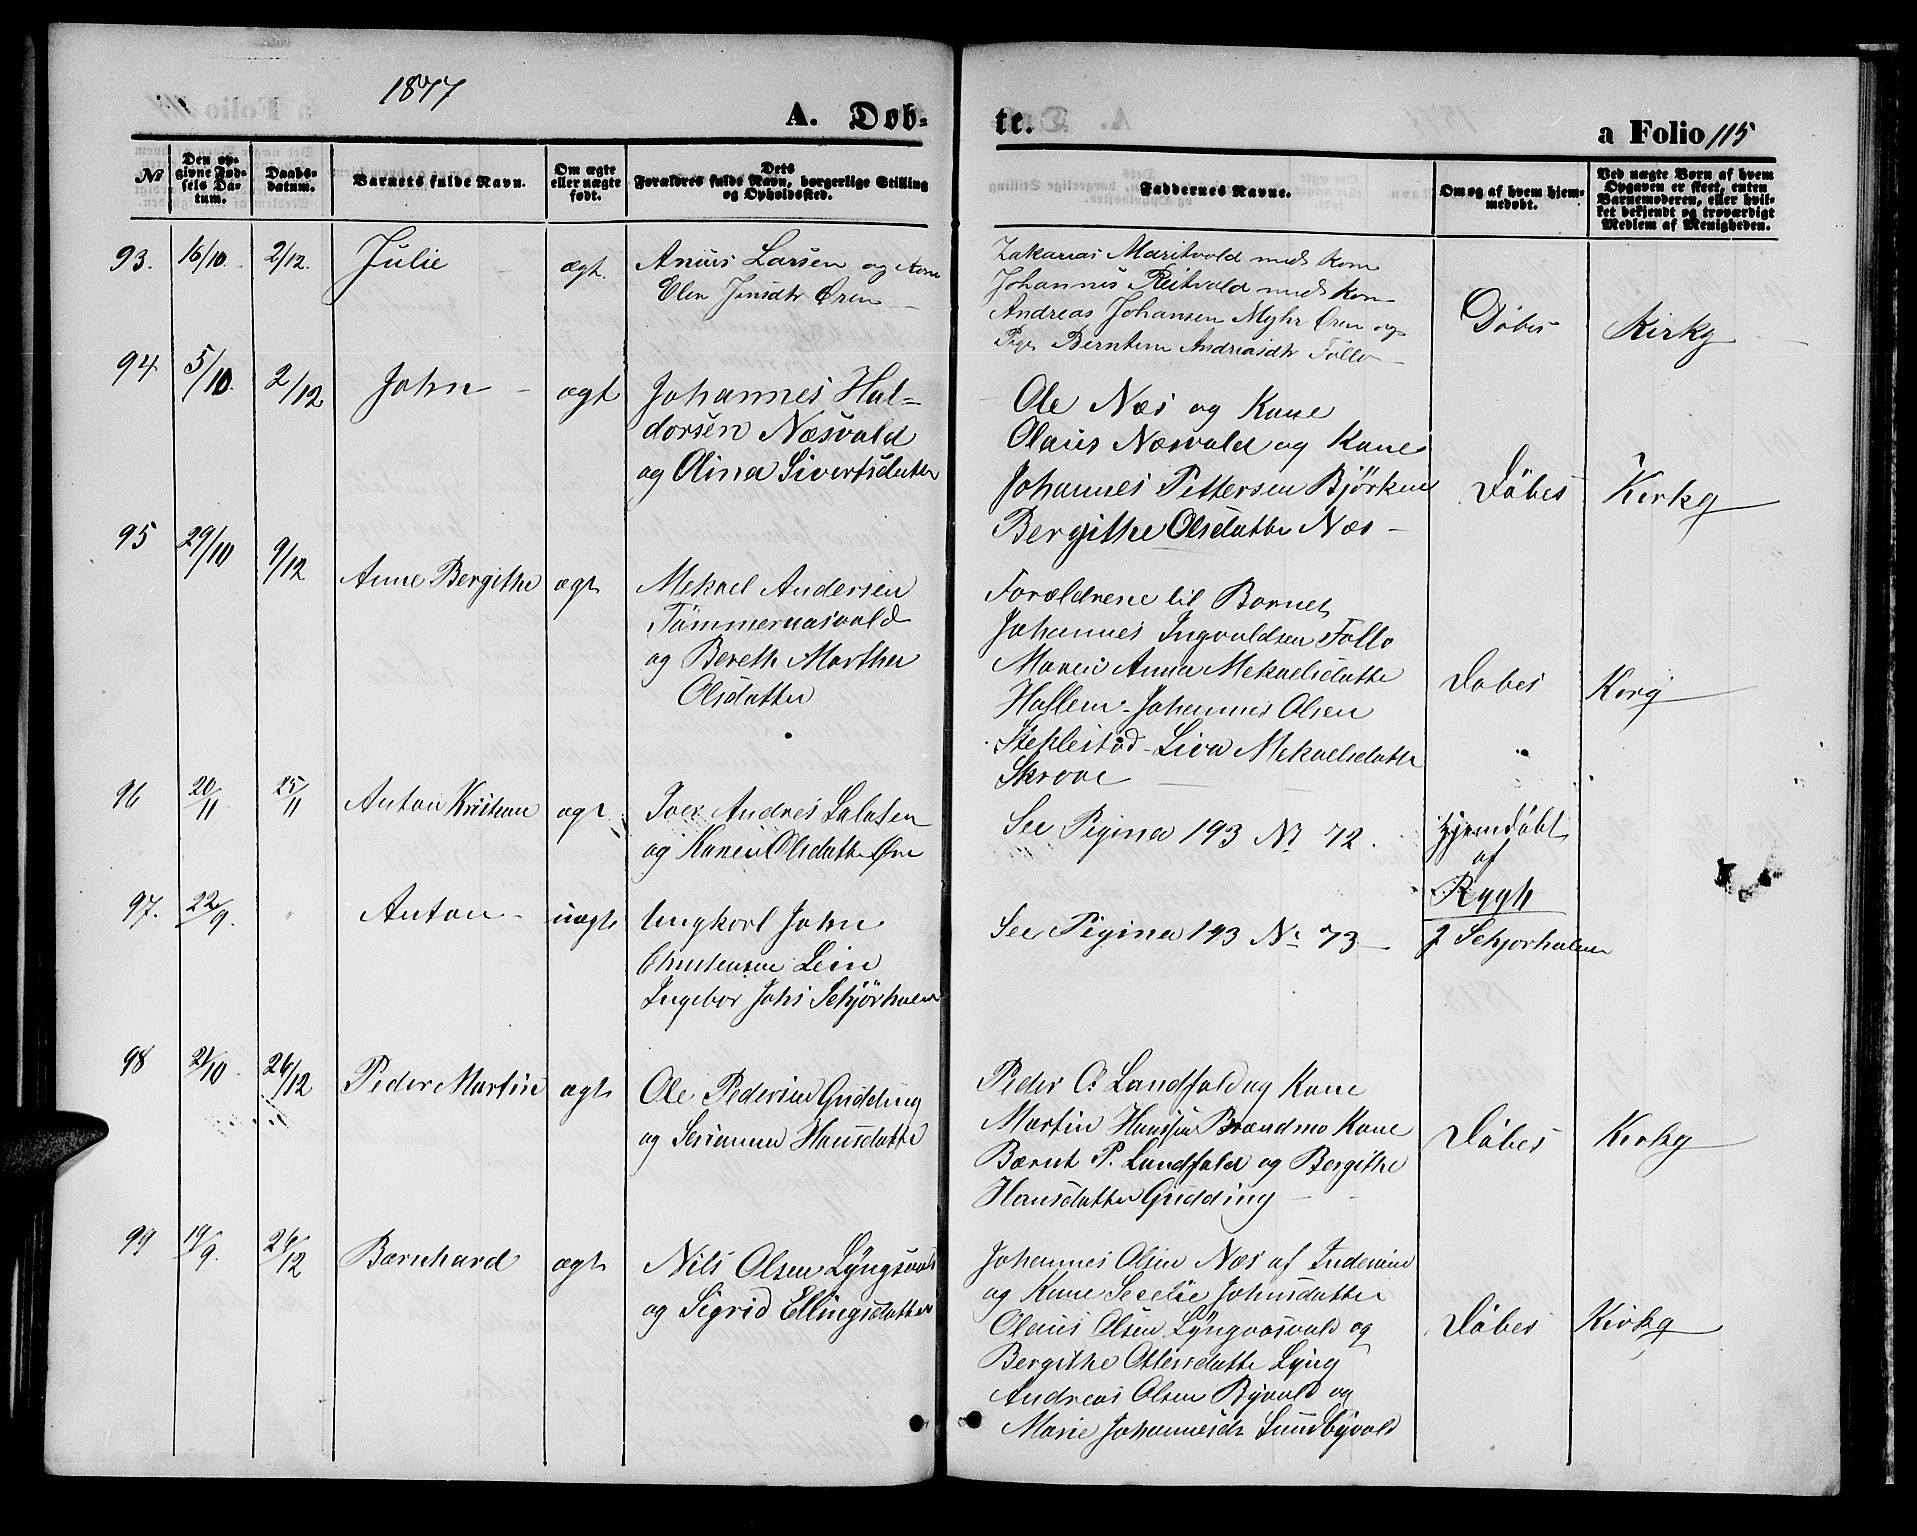 1877
A. Døb-
te.
a Folio 115
No
Den op-
givne Fød-
sels Da-
tum.
Daabs-
datum.
Barnets fulde Navn.
Om ægte
eller uægte
født.
Dets
Forældres fulde Navn, borgerlige Stilling
og Opholdssted.
Faddernes Navne.
Om og af hvem hjem-
medøbt.
Ved uægte Børn af hvem
Opgaven er skeet, enten
Barnemoderen, eller hvil-
ket bekjendt og troværdigt
Medlem af Menigheden.
93. 16/10. 2/12. Julie ægt. Anius Larsen og Kone
Elen Jensdtr Øren
Zakarias Maritvold med Kone
Johannes Reitvold med Kone
Andreas Johansen Myhr Øren og
Pige Berntine Andreasdtr Follo
Døbes Kirkg
94 5/10. 2/12 John ægt Johannes Hal-
dorsen Næsvald
og Olina Sivertsdatter
Ole Næs og Kone
Olaus Næsvald og Kane
Johannes Pettersen Björken
Bergithe Olsdatter Næs
Döbes Kirkg
95 29/10 9/12 Anne Bergithe ægt Mekael Andersen
Tömmeraasvald
og Bereth Marthea
Olsdatter
Forældrene til Barnet
Johannes Ingvaldsen Follo
Maren Anna Mekaelsdatte
Hallem - Johannes Olsen
Steklestad - Liva Mekaelsdatte
Skrove
Döbes Kirg
96 20/11. 25/11 Anton Kristian ægt. Andreas
og Karen Olsdatter Øre
See Pigina 193 No 72.
Hjemdöbt
af
Rygh
97. 22/9. " Anton uægt Ungkarl John
Christensen Lein
Ingebor Johs Schjörholmen
See Pigina 193 No 73
J Schjorholmen
98 21/10 26/12 Peder Martin ægt Ole Pedersen Gudding
og Serianna Hansdatte
Peder O. Landfald og Kane
Martin Hanssen Brændmo Kane
Bærnt P. Landfald og Bergithe
Hansdatter Gudding
Döbes Kirkg
99 19/9. 26/12 Bærnhard ægt Nils Olsen Lyngsvald
og Sigrid Ellingsdatter
Johannes Olsen Næs af Inderöen
og Kane Secelie Johnsdatter
Olaus Olsen Lyngvasvald og
Bergithe Ottersdatte Lyng
Andreas Olsen Byvald og
Marie Johannesdt Sundbyvald
Döbes Kirkg